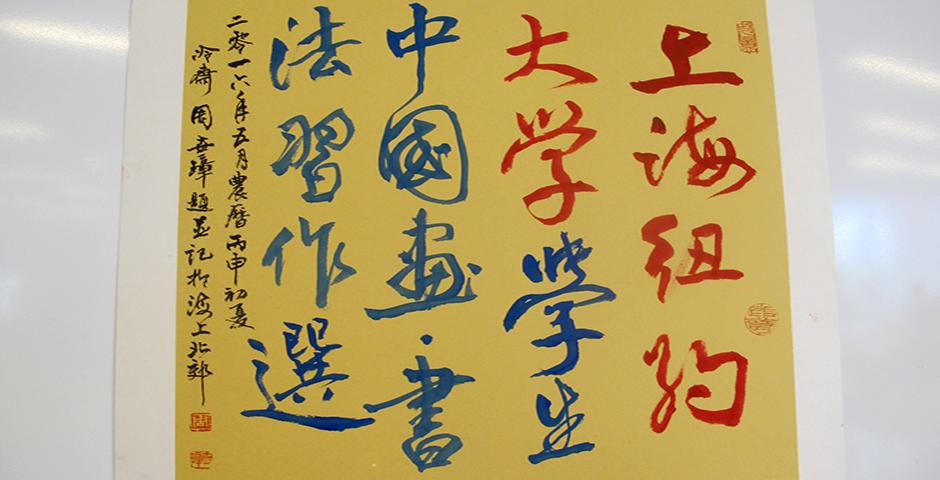 上海纽约
大学學生
中國画·書
法習作選
二零一六年五月農曆丙申初夏
冷齋周安璋題並記於海上北郊